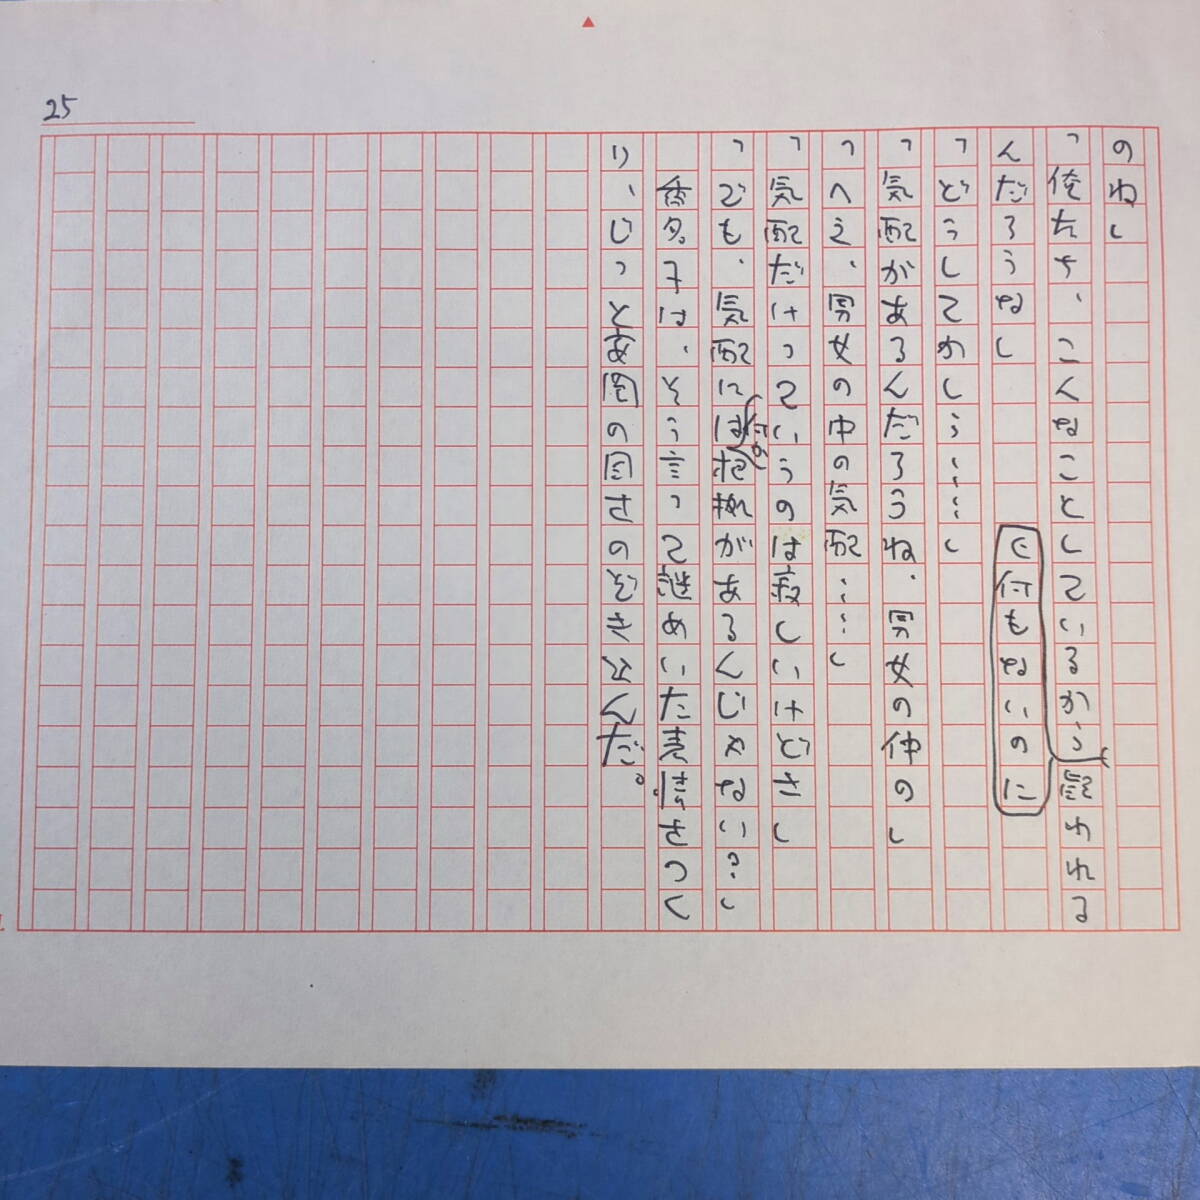 25
のね」
「俺たち、こんなことしているから疑われる
何もないのに
んだろうな」
「どうしてかしら……」
「気配があるんだろうね、男女の仲の」
「へえ、男女の中の気配……」
「気配だけっていうのは寂しいけどさ」
何か
「でも、気配には根拠があるんじゃない?」
香多子は、そう言って謎めいた表情をつく
り、じっと安岡の目をのぞき込んだ。